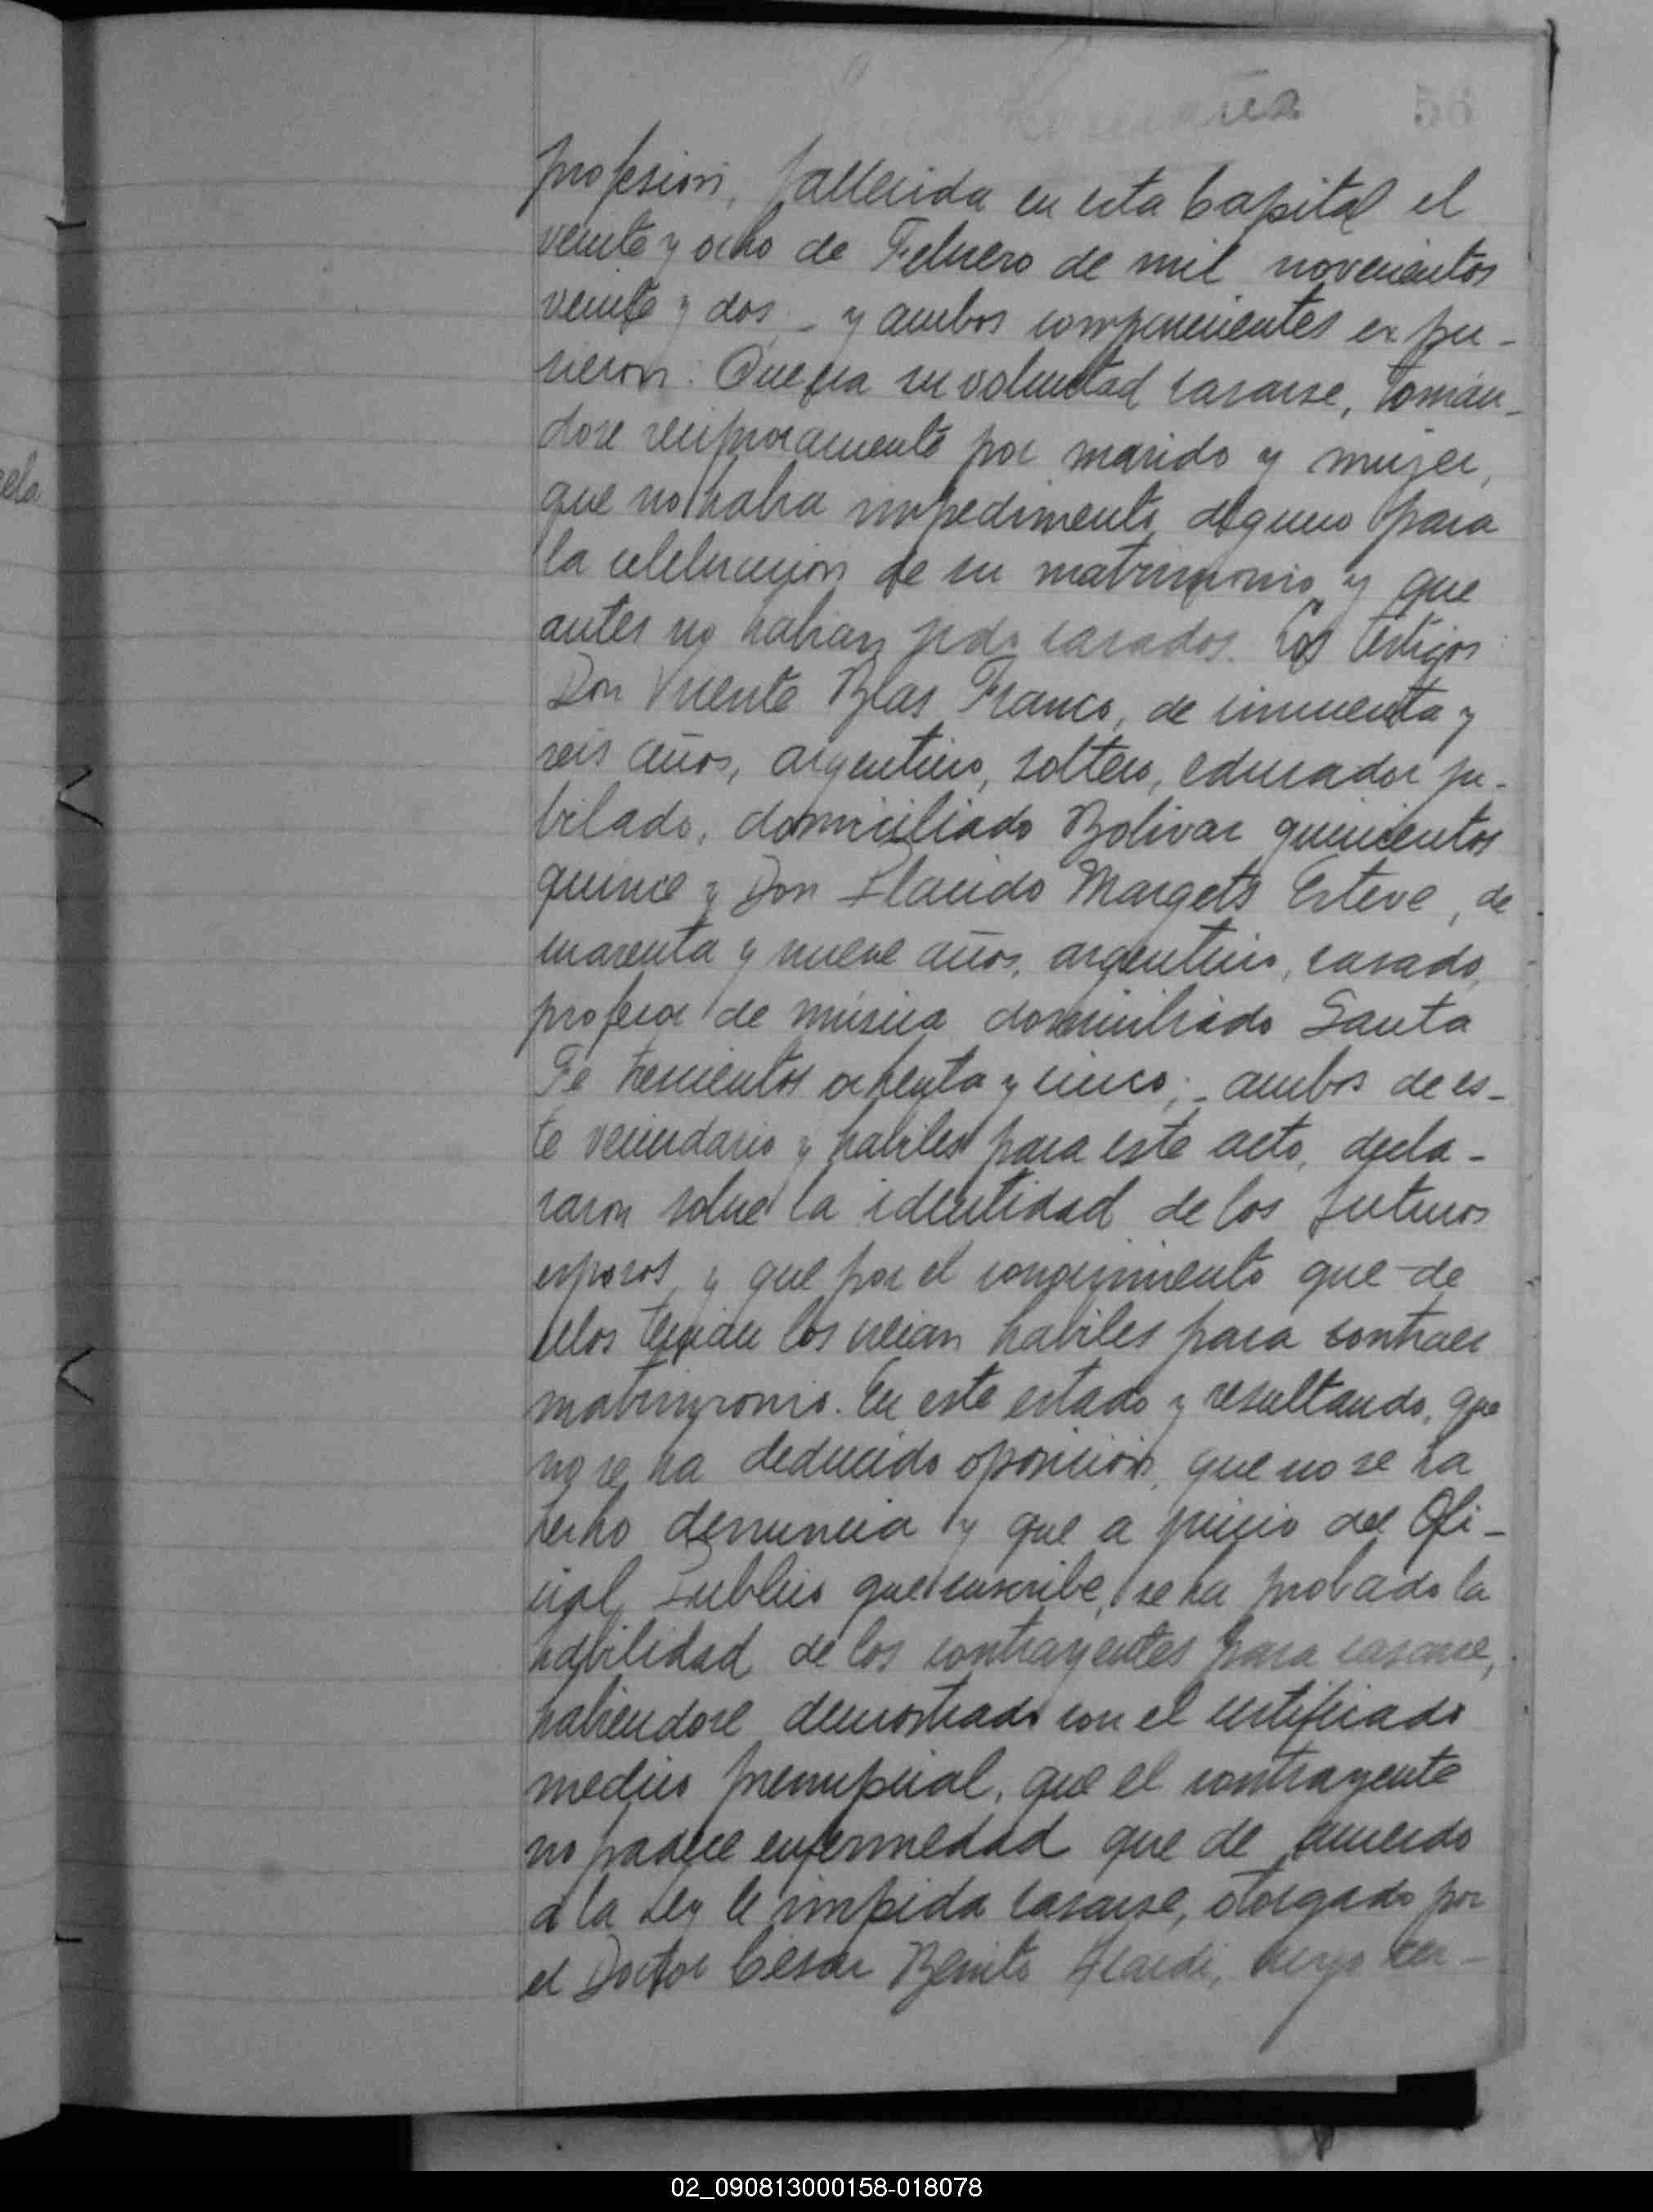 56
profesión, fallecida en esta Capital el
veinte y ocho de Febrero de mil novecientos
veinte y dos; - y ambos comparecientes expu-
sieron: Que era su voluntad casarse, tomán-
dose recíprocamente por marido y mujer,
que no había impedimento alguno para
la celebración de su matrimonio y que
antes no habían sido casados. Los testigos
Don Vicente Blas Franco, de cincuenta y
seis años, argentino, soltero, educador ju-
bilado, domiciliado Bolivar quinientos
quince y Don Placido Margets Esteve, de
cuarenta y nueve años, argentino, casado,
profesor de música domiciliado Santa
Fe trescientos ochenta y cinco; - ambos de es-
te vecindario y habiles para este acto, decla-
raron sobre la identidad de los futuros
esposos y que por el conocimiento que de
ellos tenian los creian habiles para contraer
matrimonio. En este estado y resultando, que
no se ha deducido oposición, que no se ha
hecho denuncia y que a juicio del Ofi-
cial Publico que suscribe, se ha probado la
habilidad de los contrayentes para casarse,
habiendose demostrado con el certificado
medico prenupcial, que el contrayente
no padece enfermedad que de acuerdo
a la Ley le impida casarse, otorgado por
el Doctor César Benito
02_090813000158-018078